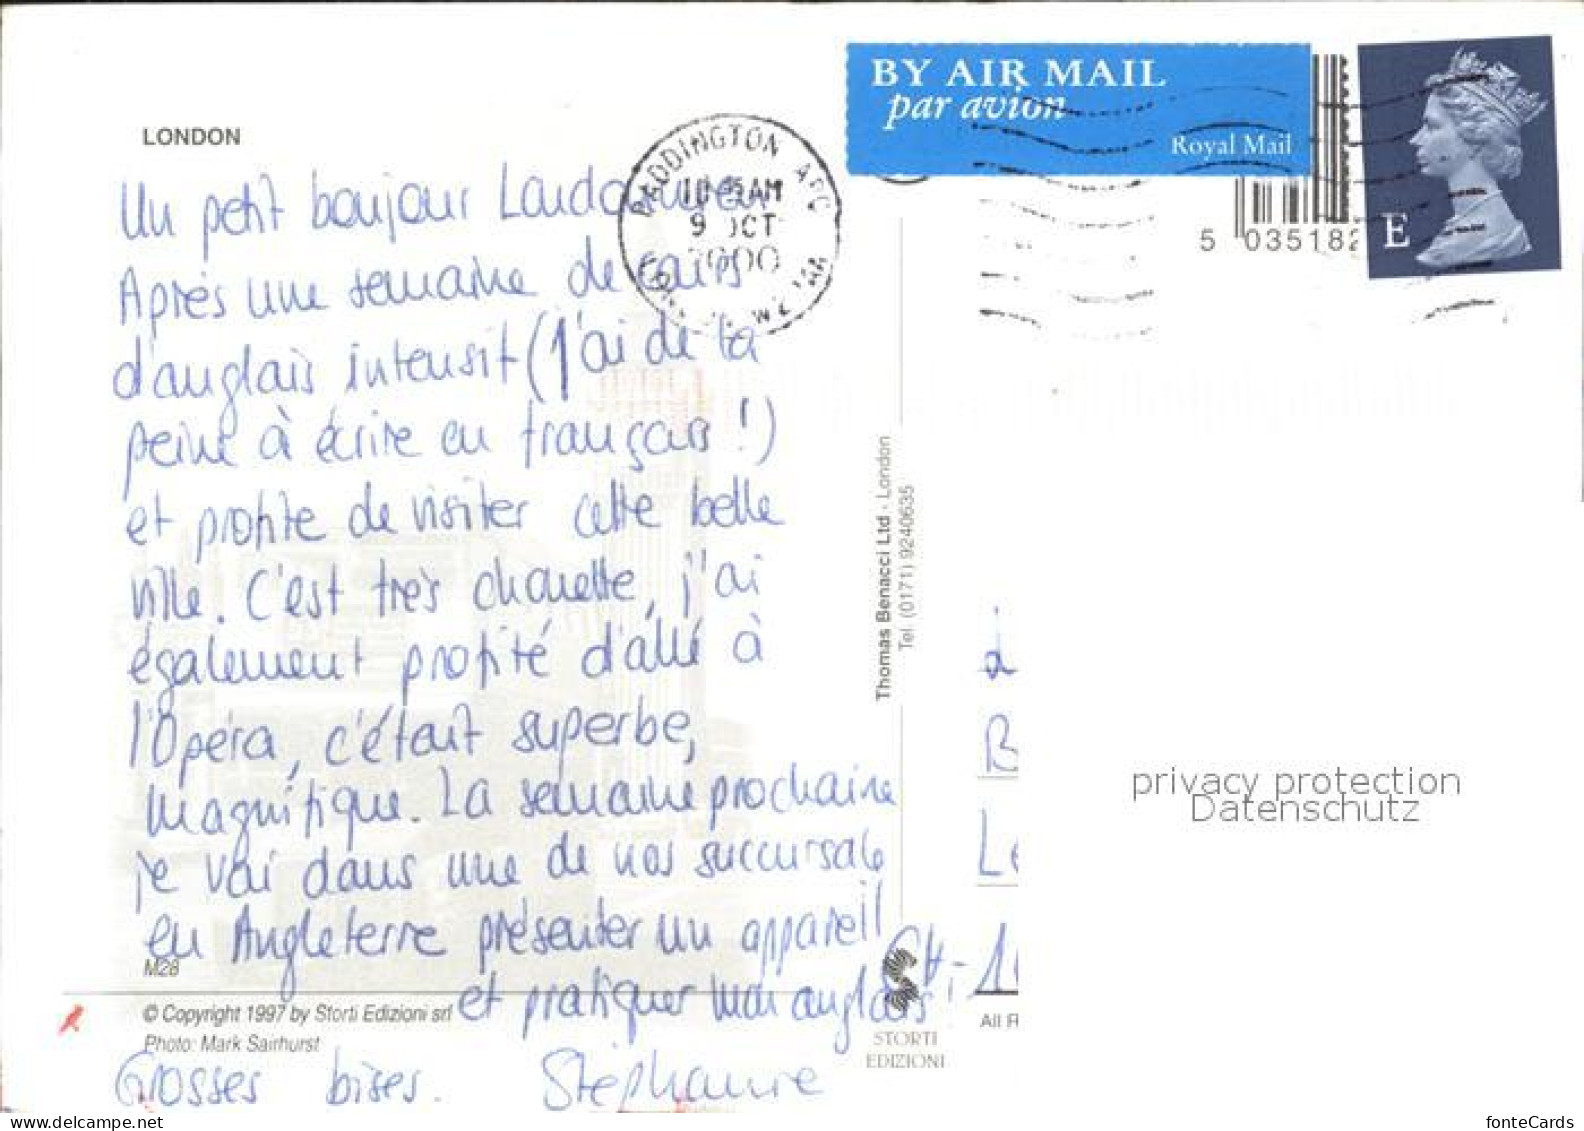 LONDON
Un petit bonjour Londonien
Après une semaine de cours
d'anglais intensif (j'ai de la
peine à écrire en français !)
et profite de visiter cette belle
ville. C'est très chouette, j'ai
également profité d'allé à
l'Opéra, c'était superbe,
magnifique. La semaine prochaine
je vai dans une de nos succursale
en Angleterre présenter un appareil
et pratiquer mon anglais
Grosses bises. Stéphanie
M28
© Copyright 1997 by Storti Edizioni srl
Photo: Mark Sairhurst
PADDINGTON
AM
9 OCT
2000
BY AIR MAIL
par avion
Royal Mail
5 035182
E
Thomas Benacci Ltd - London
Tel. (0171) 9240635
à
B
Le
CH-1
All R
STORTI
EDIZIONI
privacy protection
Datenschutz
fonteCards